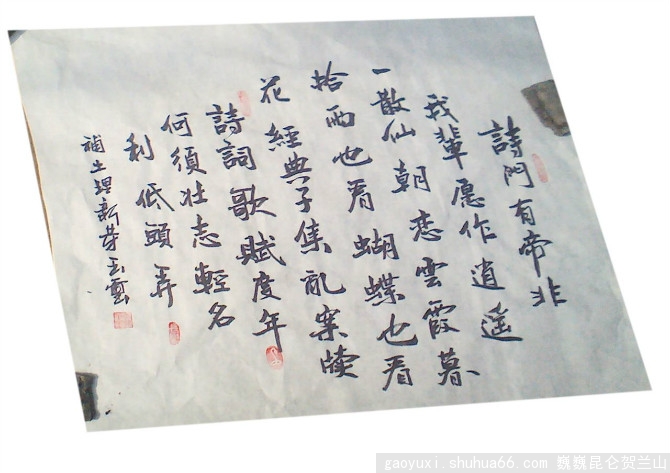 詩門有帝非
我輩愿作逍遥
一散仙朝恋雲霞暮
拾雨也看蝴蝶也看
花經典子集乱案牍
詩詞歌賦度年
何須壮志輕名
利低頭弄
補土埋新芽玉雲
gaoyuxi.shuhua66.com 巍巍昆仑贺兰山